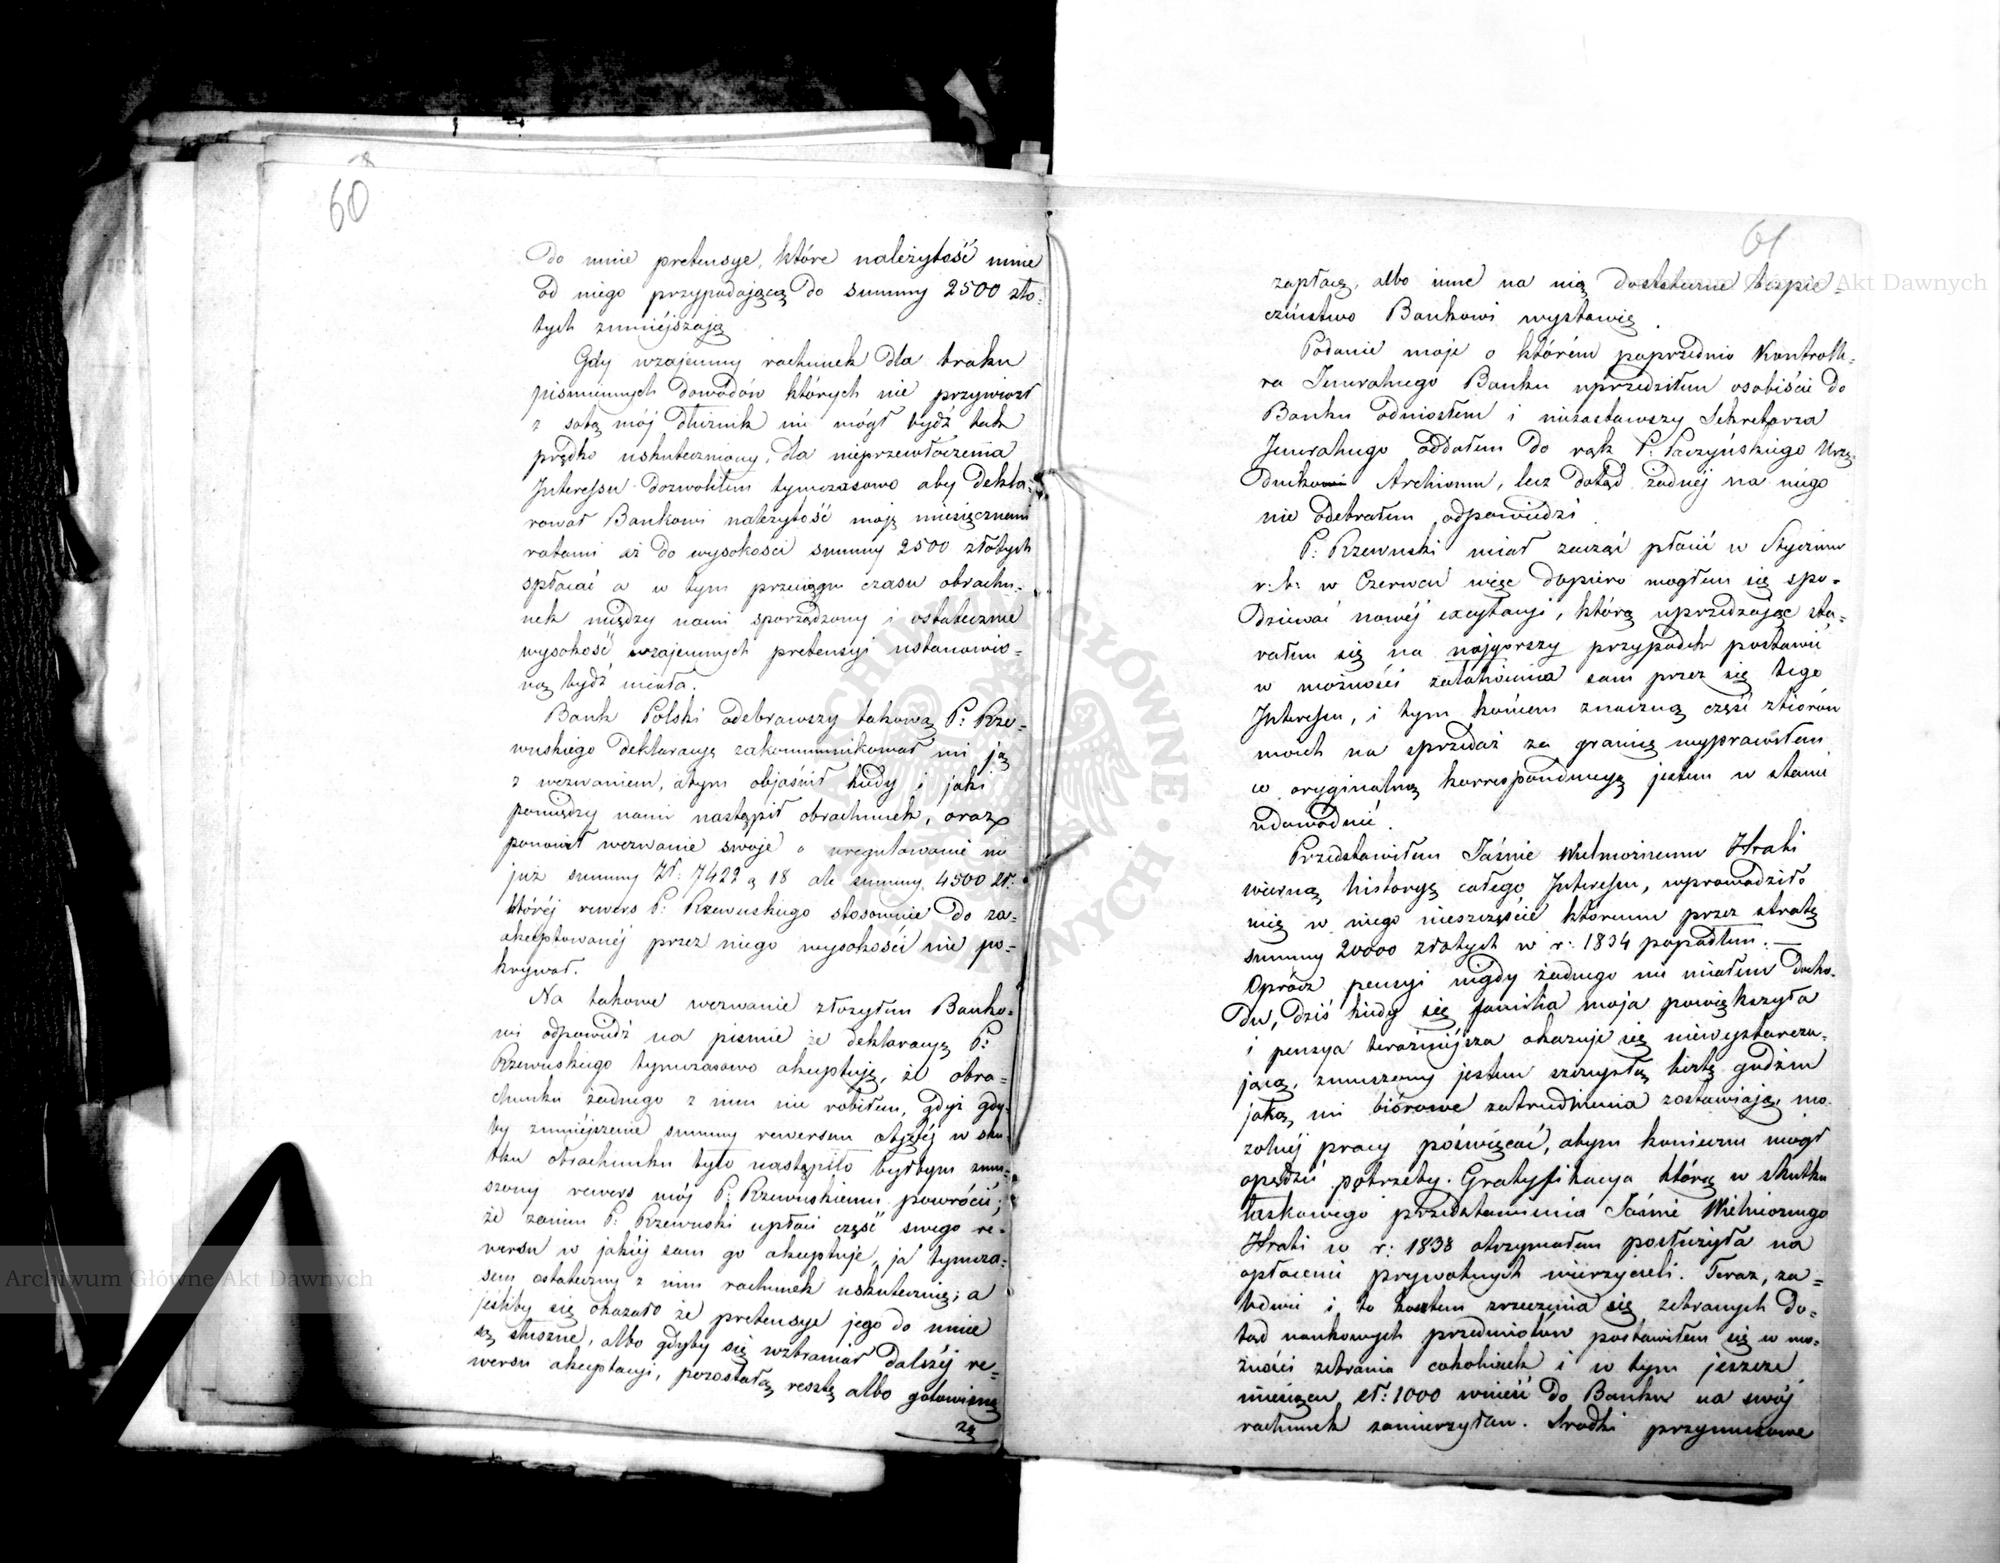 60
do mnie pretensye, które należytość mnie
od niego przypadającą do summy 2500 zło-
tych zmniejszają
Gdy wzajemny rachunek dla braku
pismiennych dowodów których nie przywiozł
z sobą mój dłużnik nie mógł bydź tak
prędko uskuteczniony, dla nieprzewłoczenia
Interessu dozwoliłem tymczasowo aby dekla-
rował Bankowi należytość moją miesięcznemi
ratami aż do wysokości summy 2500 złotych
spłacać a w tym przeciągu czasu obrachu-
nek między nami sporządzony i ostatecznie
wysokość wzajemnych pretensyi ustanowio-
ną bydź miała.
Bank Polski odebrawszy takową P: Rze-
wuskiego deklaracyę zakommunikował mi ją
z wezwaniem, abym objaśnił kiedy i jaki
pomiędzy nami nastąpił obrachunek, oraz
ponowił wezwanie swoje o uregulowanie no
już summy Zł: 7422 g 18 ale summy 4500 zł:
której rewers P: Rzewuskiego stosownie do za-
akceptowanej przez niego wysokości nie po-
krywał.
Na takowe wezwanie złożyłem Banko-
wi odpowiedź na pismie że deklaracyą P:
Rzewuskiego tymczasowo akceptuję, że obra-
chunku żadnego z nim nie robiłem, gdyż gdy-
by zmniejszenie summy rewersem objętej w sku-
tku obrachunku było nastąpiło byłbym zmu-
szony rewers mój P: Rzewuskiemu powrócić;
że zanim P: Rzewuski upłaci część swego re-
wersu w jakiej sam go akceptuje, ja tymcza-
sem ostateczny z nim rachunek uskutecznię; a
jeśliby się okazało że pretensye jego do mnie
są słuszne, albo gdyby się wzbraniał dalszej re-
wersu akceptacyi, pozostałą resztę albo gotowizną
za
61
zapłacę, albo inne na nią dostateczne bezpie-
czeństwo Bankowi wystawię.
Podanie moje o którém poprzednio Kontrolle-
ra Jeneralnego Banku uprzedziłem osobiście do
Banku odniosłem i niezastawszy Sekretarza
Jeneralnego oddałem do rąk P: Paczyńskiego Urzę-
dnika Archiwum, lecz dotąd żadnej na niego
nie odebrałem odpowiedzi.
P: Rzewuski miał zacząć płacić w Styczniu
r: b: w Czerwcu więc dopiero mogłem się spo-
dziewać nowej excytacyi, którą uprzedzając sta-
rałem się na najgorszy przypadek postawić
w możności załatwienia sam przez się tego
Interessu, i tym końcem znaczną część zbiorów
moich na sprzedaż za granicę wyprawiłem
co oryginalną korrespondencyą jestem w stanie
udowodnić.
Przedstawiłem Jaśnie Wielmożnemu Hrabi
wierną historyę całego Interessu, wprowadziło
mię w niego nieszczęście któremu przez stratę
summy 20000 złotych w r: 1834 popadłem. —
Oprócz pensyi nigdy żadnego nie miałem docho-
du, dziś kiedy się familia moja powiększyła
i pensya teraźniejsza okazuje się niewystarcza-
jącą, zmuszony jestem szczupłą liczbę godzin
jaką mi biórowe zatrudnienia zostawiają, mo-
zolnej pracy poświęcać, abym konieczne mógł
opędzić potrzeby. Gratyfikacya którą w skutku
łaskawego przedstawienia Jaśnie Wielmożnego
Hrabi w r: 1838 otrzymałem posłużyła na
opłacenie prywatnych wierzycieli. Teraz, za-
ledwie i to kosztem zrzeczenia się zebranych do-
tąd naukowych przedmiotów postawiłem się w mo-
żności zebrania cokolwiek i w tym jeszcze
miesiącu zł: 1000 wnieść do Banku na swój
rachunek zamierzyłem. Srodki przymusowe
Archiwum Główne Akt Dawnych
Archiwum Główne Akt Dawnych
ARCHIWUM GŁÓWNE AKT DAWNYCH